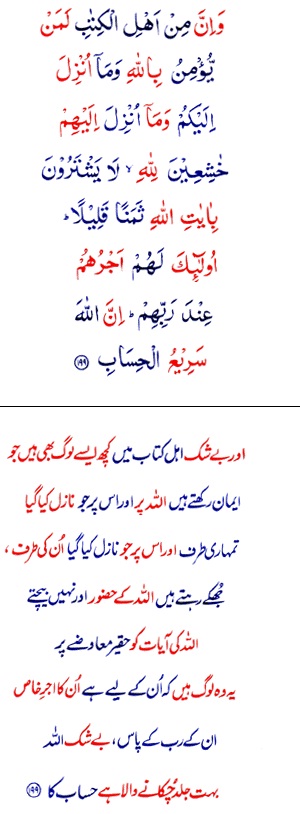 وَاِنَّ مِنْ اَهْلِ الْكِتٰبِ لَمَنْ
يُّؤْمِنُ بِاللّٰهِ وَمَاۤ اُنْزِلَ
اِلَيْكُمْ وَمَاۤ اُنْزِلَ اِلَيْهِمْ
خٰشِعِيْنَ لِلّٰهِ ۙ لَا يَشْتَرُوْنَ
بِاٰيٰتِ اللّٰهِ ثَمَنًا قَلِيْلًا ؕ
اُولٰٓئِكَ لَهُمْ اَجْرُهُمْ
عِنْدَ رَبِّهِمْ ؕ اِنَّ اللّٰهَ
سَرِيْعُ الْحِسَابِ ﴿۱۹۹﴾
اور بے شک اہل کتاب میں کچھ ایسے لوگ بھی ہیں جو
ایمان رکھتے ہیں اللہ پر اور اس پر جو نازل کیا گیا
تمہاری طرف اور اس پر جو نازل کیا گیا اُن کی طرف ،
جُھکے رہتے ہیں اللہ کے حضور اور نہیں بیچتے
اللہ کی آیات کو حقیر معاوضے پر
یہ وہ لوگ ہیں کہ اُن کے لیے ہے اُن کا اجرِ خاص
ان کے رب کے پاس ، بے شک اللہ
بہت جلد چُکانے والا ہے حساب کا ﴿۱۹۹﴾